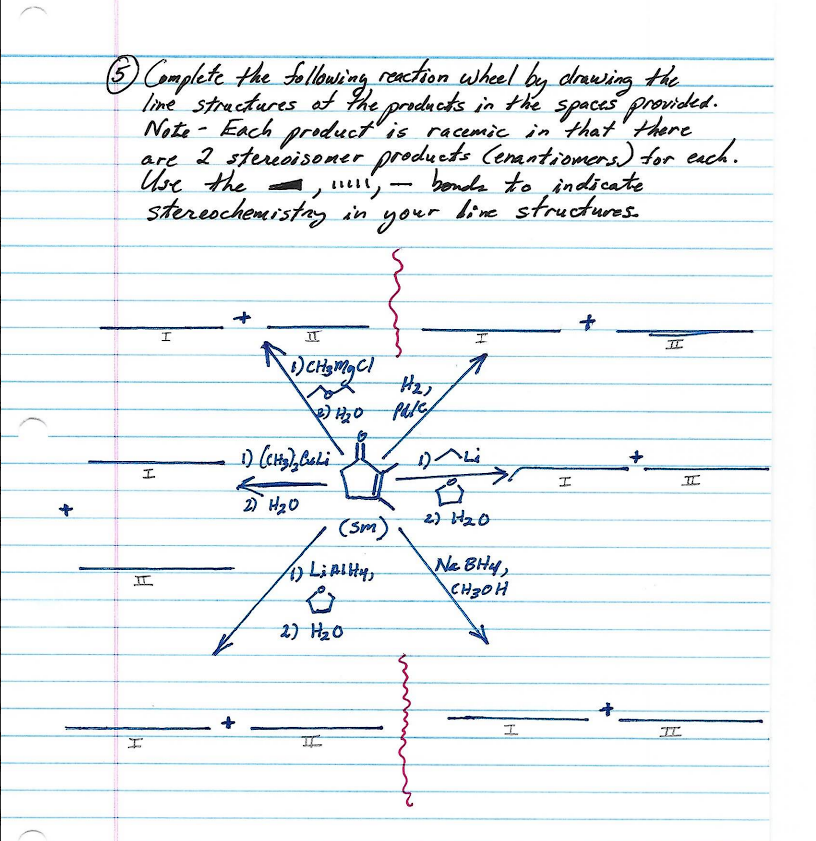 (5) Complete the following reaction wheel by drawing the
line structures of the products in the spaces provided.
Note - Each product is racemic in that there
are 2 stereoisomer products (enantiomers) for each.
Use the , , — bonds to indicate
stereochemistry in your line structures.
+ +
I II I II
1) CH3MgCl
O
2) H2O
H2,
Pd/C
O
1) (CH3)2CuLi
2) H2O
1) Li
O
2) H2O
I
+
II
I + II
(SM)
1) LiAlH4,
O
2) H2O
NaBH4,
CH3OH
+ +
I II I II